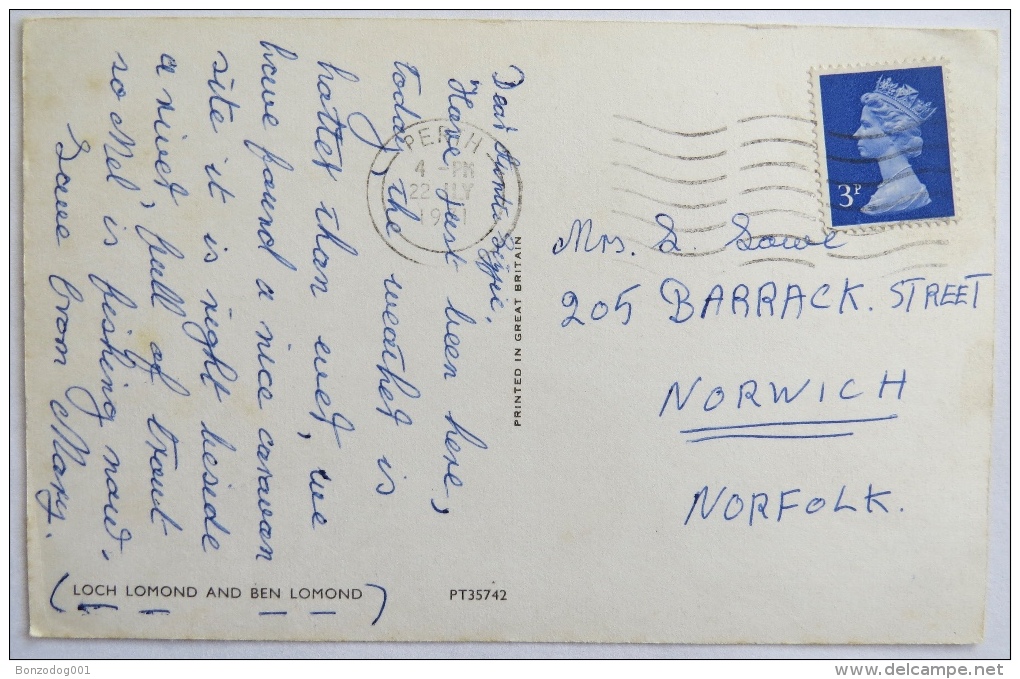 Dear
Have just been here,
today, the weather is
hotter than ever, we
have found a nice caravan
site it is right beside
a river, full of trout
so Mel is fishing now.
Love from Mary.
(LOCH LOMOND AND BEN LOMOND)
PT35742
PRINTED IN GREAT BRITAIN
PERTH
4 - PM
22 JLY
3P
Mrs.
205 BARRACK. STREET
NORWICH
NORFOLK.
Bonzodog001
www.delcampe.net